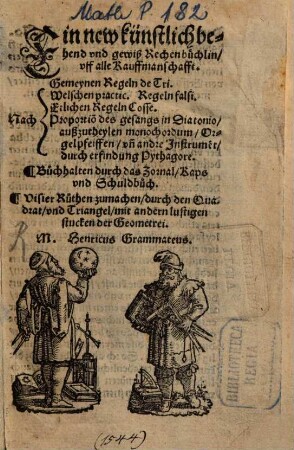 Math P. 182
Ein new künstlich be-
hend vnd gewiß Rechenbüchlin/
vff alle Kauffmanschafft.
Gemeynen Regeln de Tri.
Welschen practic. Regeln falsi.
Etlichen Regeln Cosse.
Nach Proportiõ des gesangs in Diatonio/
außzutheylen monochordum/ Or-
gelpfeiffen/ vñ andre Instrumēt/
durch erfindung Pythagore.
¶ Büchhalten durch das Zornal/ Kaps
vnd Schuldbůch.
¶ Visier Růthen zumachen/ durch den Qua
drat/ vnd Triangel/ mit andern lustigen
stucken der Geometrei.
M. Henricus Grammateus.
BIBLIOTHECA
REGIA
(1544)